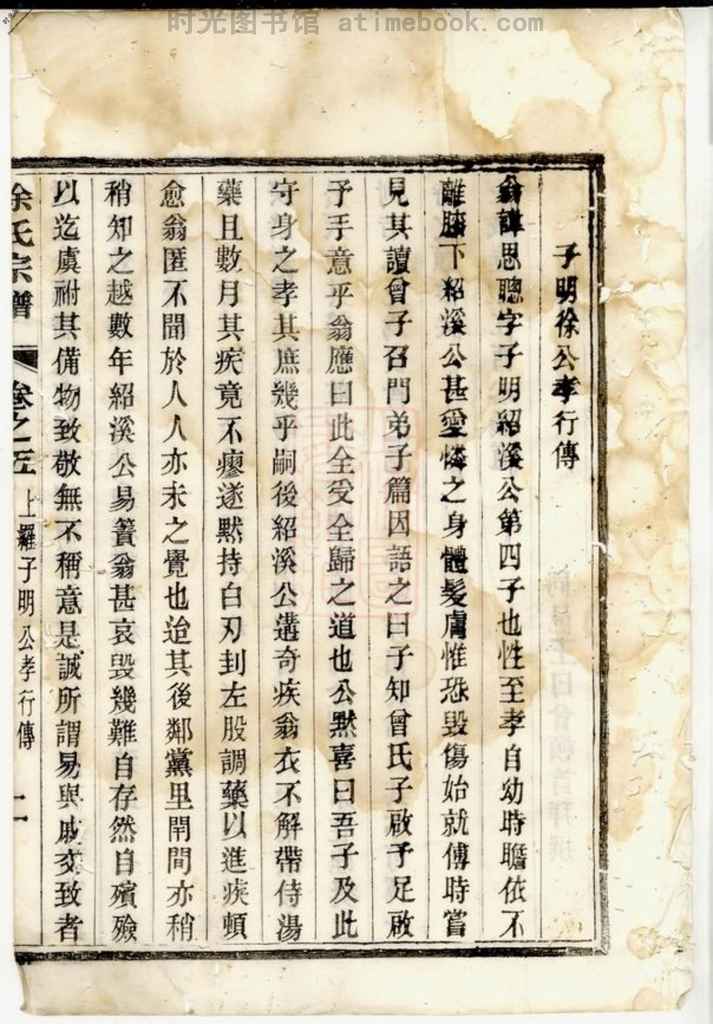 时光图书馆 atimebook.com
子明徐公孝行傳
翁諱思聰字子明紹溪公第四子也性至孝自幼時瞻依不
離膝下紹溪公甚愛憐之身體髮膚惟恐毀傷始就傅時嘗
見其讀曾子召門弟子篇因語之曰子知曾氏子啟予足啟
予手意乎翁應曰此全受全歸之道也公默喜曰吾子及此
守身之孝其庶幾乎嗣後紹溪公遘奇疾翁衣不解帶侍湯
藥且數月其疾竟不瘳遂默持白刃刲左股調藥以進疾頓
愈翁匿不聞於人人亦未之覺也迨其後鄰黨里閈間亦稍
稍知之越數年紹溪公易簀翁甚哀毀幾難自存然自殯殮
以迄虞祔其備物致敬無不稱意是誠所謂易與戚交致者
余氏宗譜 卷之五 上羅子明公孝行傳 二